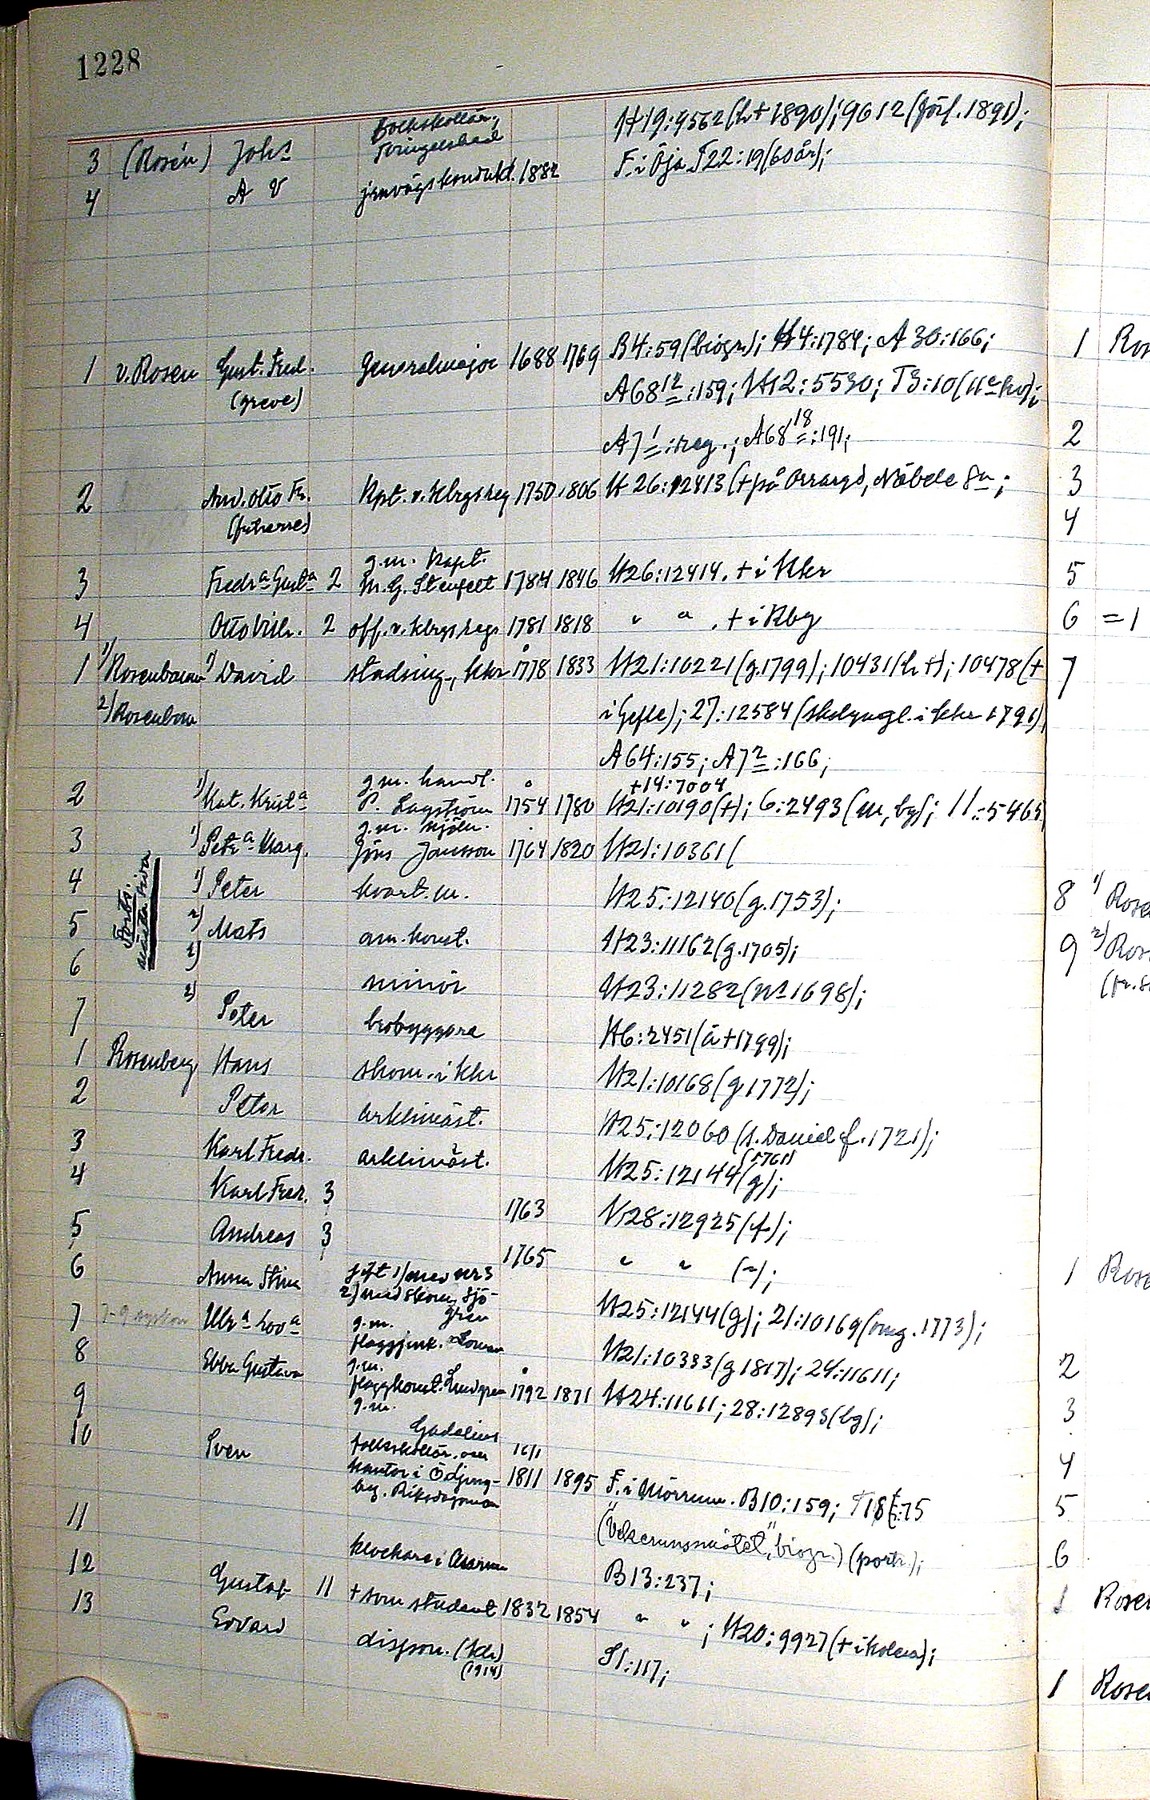 1228
3 (Rosén) Johs Folkskollär., H19:9562(h+1890); 9612(förf. 1891);
4 A V järnvägskondukt. 1882 F. i Öja T22:19(60 år);
1 v. Rosen Gust. Fred. Generalmajor 1688 1769 B4:59(biogr); H4:1784; A30:166;
(greve) A68 12:159; H12:5530; T3:10
A7 1:reg.; A68 18:191;
2 And. Otto Fr. Kpt. v. Klbgsreg 1750 1806 H26:12413(+på
(friherre)
g.m. Kapt.
3 Fredr a Gust a 2 M.G. Stenfelt 1784 1846 H26:12414. + i Kkr
4 Otto Vilh. 2 off. v. Klbgs regs 1781 1818 " " , + i Kbg
1 1) Rosenbaum 1) David stadsing., Kkr 1778 1833 H21:10221(g.1799); 10431(h+); 10478(+
2) Rosenbom i Gefle); 27:12584
A64:155; A7 2:166;
g.m. handl. +14:7004
2 1) Kat. Krist a P. Lagström 1754 1780 H21:10190(+); 6:2493(m, bg); 11:5465
g.m. mjöln.
3 1) Petr a Marg. Jöns Jansson 1764 1820 H21:10361(
4 1) Peter kvart.m. H25:12140(g.1753);
Forts.
nästa sida
5 2) Mats am. konst. H23:11162(g.1705);
6 2) minör H23:11282(nr 1698);
7 2) Peter brobyggare H6:2451(ä+1799);
1 Rosenberg Hans skom. i Kkr H21:10168(g 1772);
2 Peter arklimäst. H25:12060(s. Daniel f. 1721);
(1761)
3 Karl Fredr. arklimäst. H25:12144(g);
4 Karl Fredr. 3 1763 H28:12925(f);
5 Andreas 3 1765 " " (");
6 Anna Stina gift 1) med nr 3 H25:12144(g); 21:10169(omg. 1773);
2) med skom. Sjögren
7 7-9 syskon Ulr a Lov a g.m. H21:10333(g 1817); 24:11611;
flaggjunk.
8 Ebba Gustava g.m. 1792 1871 H24:11611; 28:12893(bg);
flaggkonst. Lindgren
9 g.m.
Gadelius
10 Sven folkskollär. och 16/1
kantor i Ödjung- 1811 1895 F. i Mörrum. B10:159; T18:75
by. Riksdagsman biogr.) (portr.);
11 klockare i Asarum B13:237;
12 Gustaf 11 + som student 1832 1854 " " ; H20:9927(+ i kolera);
13 Edvard dispon. (Kkr) S1:117;
(1914)
1 Ros
2
3
4
5
6 = 1
7
8 1) Rose
9 2) Ros
1 Rose
2
3
4
5
6
1 Rosen
1 Rose